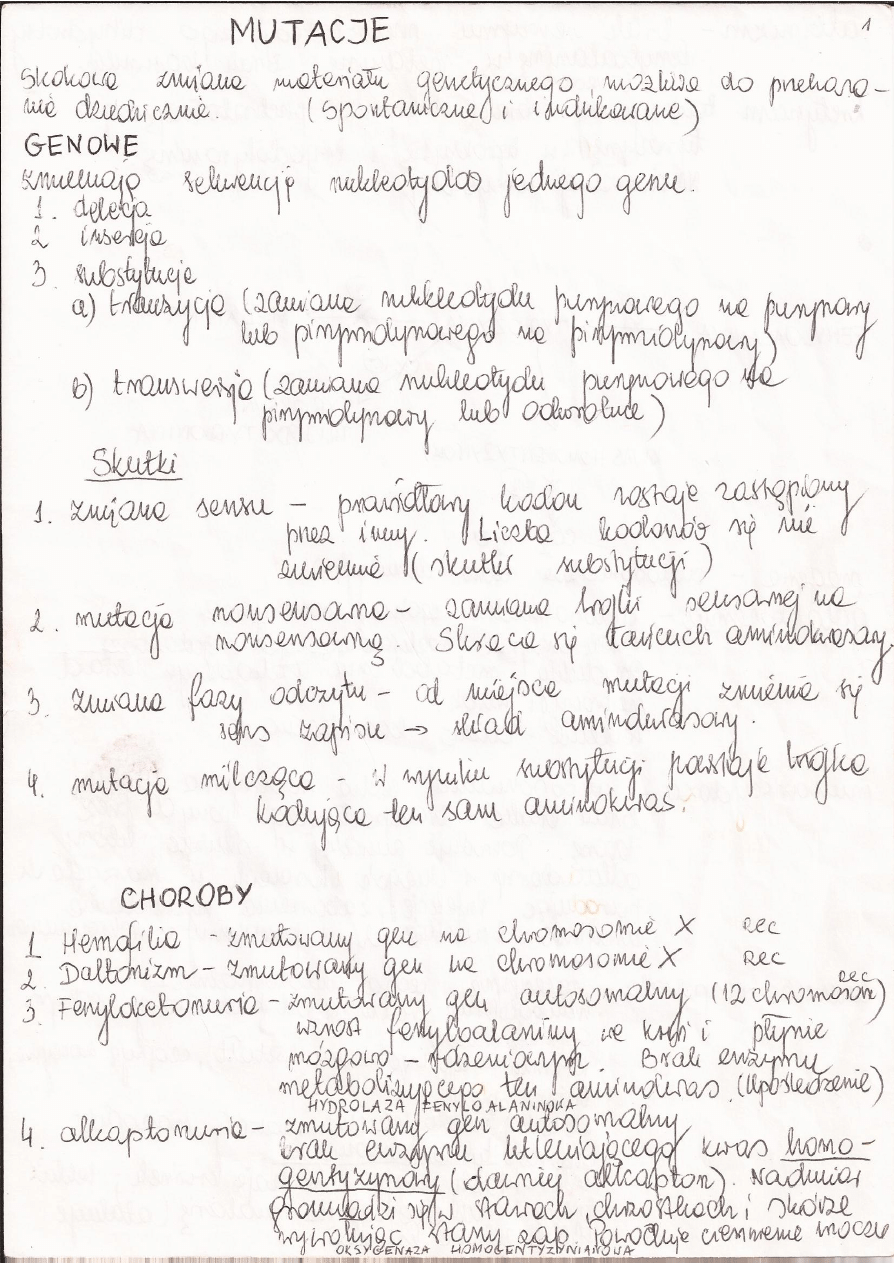 1
MUTACJE
Skokowa zmiana materiału genetycznego, możliwa do przekaza-
nia dziedzicznie. (spontaniczne i indukowane)
GENOWE
zmieniają sekwencję nukleotydów jednego genu.
1. delecja
2 insercja
3. substytucje
a) tranzycja (zamiana nukleotydu purynowego na purynowy
lub pirymidynowego na pirymidynowy)
b) transwersja (zamiana nukleotydu purynowego na
pirymidynowy lub odwrotnie)
Skutki
1. zmiana sensu – prawidłowy kodon zostaje zastąpiony
przez inny. Liczba kodonów się nie
zmienia (skutek substytucji)
2. mutacja nonsensowna – zamiana trójki sensownej na
nonsensowną. Skraca się łańcuch aminokwasowy.
3. zmiana fazy odczytu – od miejsca mutacji zmienia się
sens zapisu → skład aminokwasowy.
4. mutacja milcząca – w wyniku substytucji powstaje trójka
kodująca ten sam aminokwas.
CHOROBY
1 Hemofilia – zmutowany gen na chromosomie X rec
2. Daltonizm – zmutowany gen na chromosomie X rec
3. Fenyloketonuria – zmutowany gen autosomalny rec (12 chromosom)
wzrost fenyloalaniny we krwi i płynie
mózgowo – rdzeniowym. Brak enzymu
metabolizującego ten aminokwas. (Upośledzenie)
HYDROLAZA FENYLOALANINOWA
4. alkaptonuria – zmutowany gen autosomalny
brak enzymu utleniającego kwas homo-
gentyzynowy (dawniej alkapton). Nadmiar
gromadzi się w stawach, chrząstkach i skórze
wywołując stany zap. Powoduje ciemnienie moczu
OKSYGENAZA HOMOGENTYZYNIANOWA